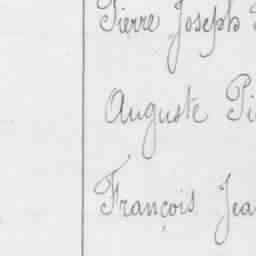 Pierre Joseph
Auguste
François